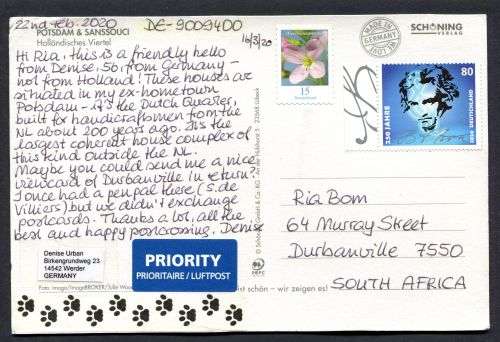 22nd feb. 2020
DE-9009400
POTSDAM & SANSSOUCI
Holländisches Viertel
16/3/20
Hi Ria, this is a friendly hello
from Denise. So, from Germany –
not from Holland! These houses are
situated in my ex-hometown
Potsdam – it's the Dutch Quarter,
built for handicraftsmen from the
NL about 200 years ago. It's the
largest coherent house complex of
this kind outside the NL.
Maybe you could send me a nice
viewcard of Durbanville in return?
I once had a penpal there (S. de
Villiers) but we didn't exchange
postcards. Thanks a lot, all the
best and happy postcrossing, Denise
Denise Urban
Birkengrundweg 23
14542 Werder
GERMANY
PRIORITY
PRIORITAIRE / LUFTPOST
Foto: imago/imageBROKER/
ist schön – wir zeigen es!
© Schöning GmbH & Co. KG • An der Hülshorst 5 · 23568 Lübeck
15
Deutschland
MADE IN
GERMANY
SCHÖNING
VERLAG
80
250 JAHRE
2020 DEUTSCHLAND
Ria Bom
64 Murray Street
Durbanville 7550
SOUTH AFRICA